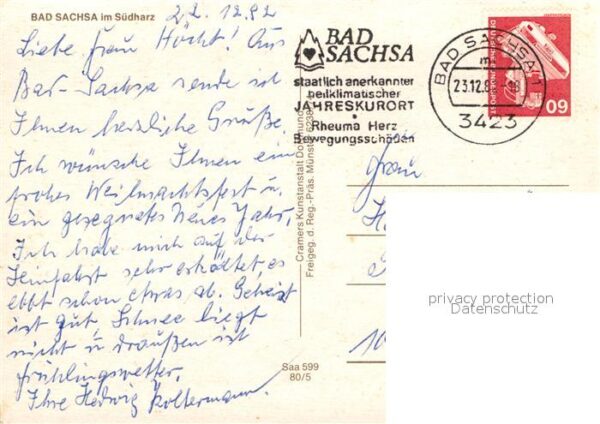 BAD SACHSA im Südharz
22.12.82
Liebe Frau Höcht! Aus
Bad-Sachsa sende ich
Ihnen herzliche Grüße.
Ich wünsche Ihnen ein
frohes Weihnachtsfest u.
ein gesegnetes Neues Jahr,
Ich habe mich auf der
Heimfahrt sehr erkältet, es
ebbt schon etwas ab. Geheizt
ist gut, Schnee liegt
nicht u draußen ist
Frühlingswetter.
Ihre Hedwig Koltermann.
Cramers Kunstanstalt Dortmund
Freigeg. d. Reg.-Präs. Münster 6238
Saa 599
80/5
BAD
SACHSA
staatlich anerkannter
heilklimatischer
JAHRESKURORT
Rheuma Herz
Bewegungsschäden
BAD SACHSA 1
23.12.8
3423
DEUTSCHE BUNDESPOST
60
Frau
H
10
privacy protection
Datenschutz